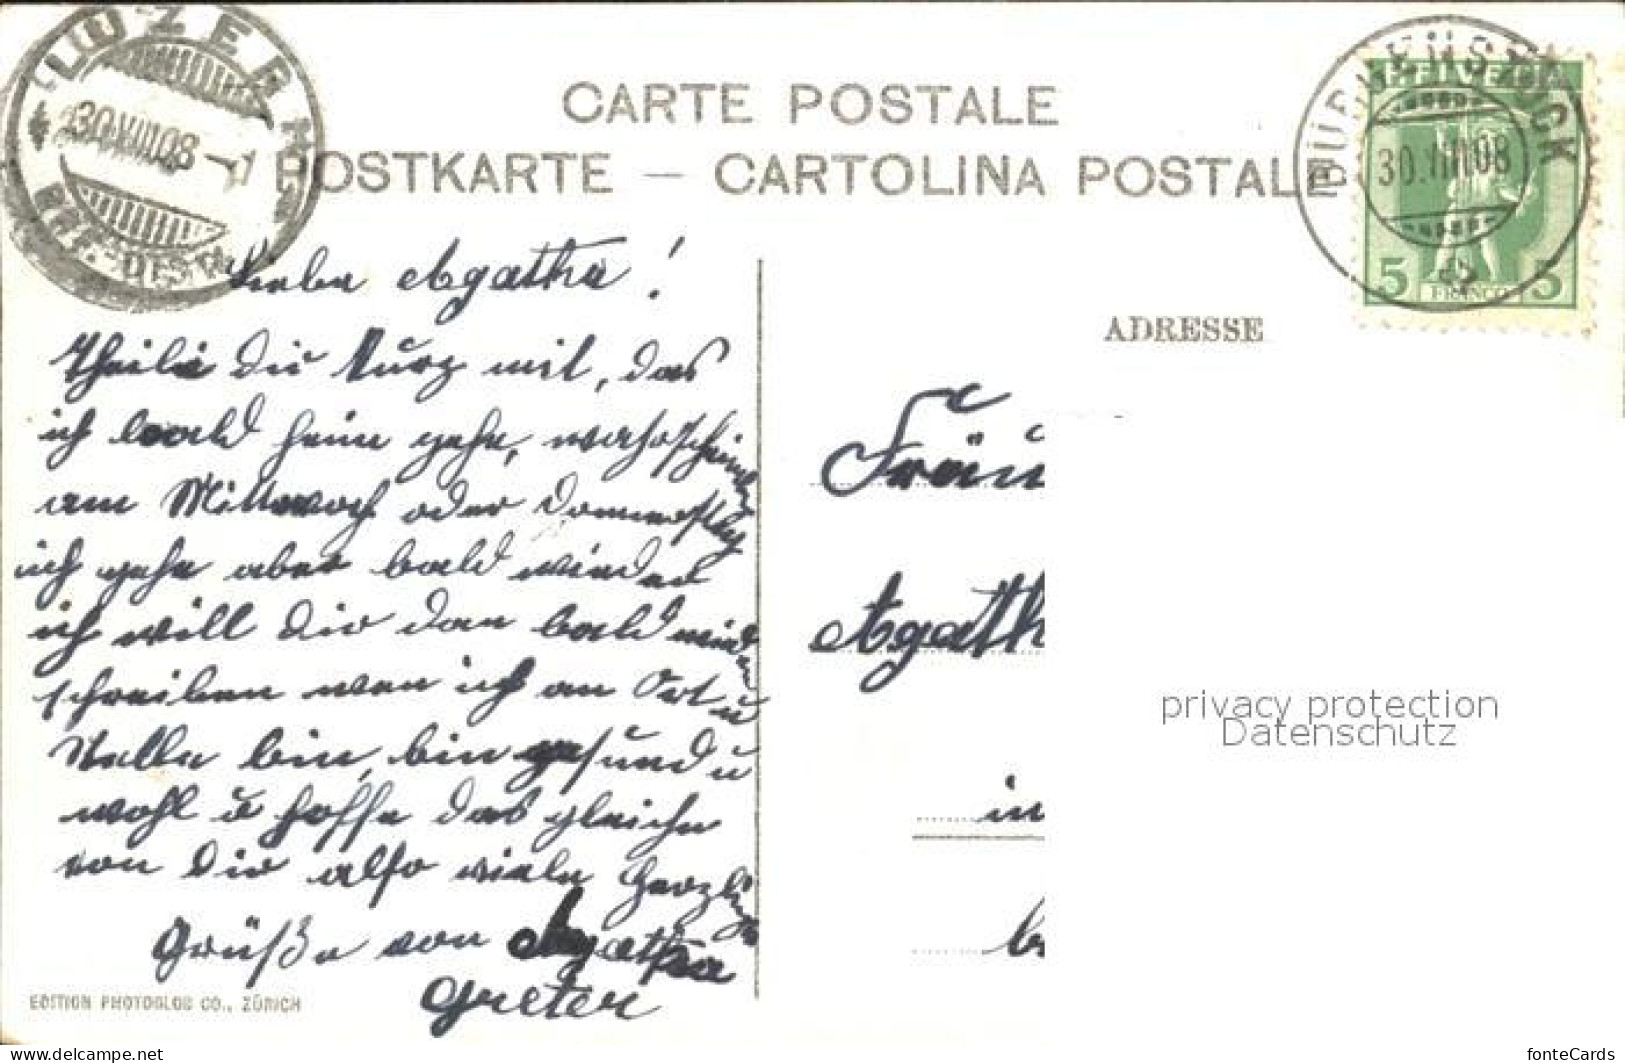 LUZERN
30.VIII.08
BRF.-DIST.
BÜRGENSTOCK
30.VIII.08
HELVETIA
5 FRANCO 5
CARTE POSTALE
POSTKARTE — CARTOLINA POSTALE
ADRESSE
Liebe Agatha!
Theile dir kurz mit, das
ich bald heim gehe, wahrscheinlich
am Mittwoch oder Donnerstag
ich gehe aber bald wieder
ich will dir dan bald wieder
schreiben wen ich an Ort u
Stelle bin, bin gesund u
wohl u hoffe das gleiche
von dir also viele herzliche
Grüße von Agatha
Greter
EDITION PHOTOGLOB CO., ZÜRICH
Fräu
Agath
in
privacy protection
Datenschutz
www.delcampe.net
fonteCards